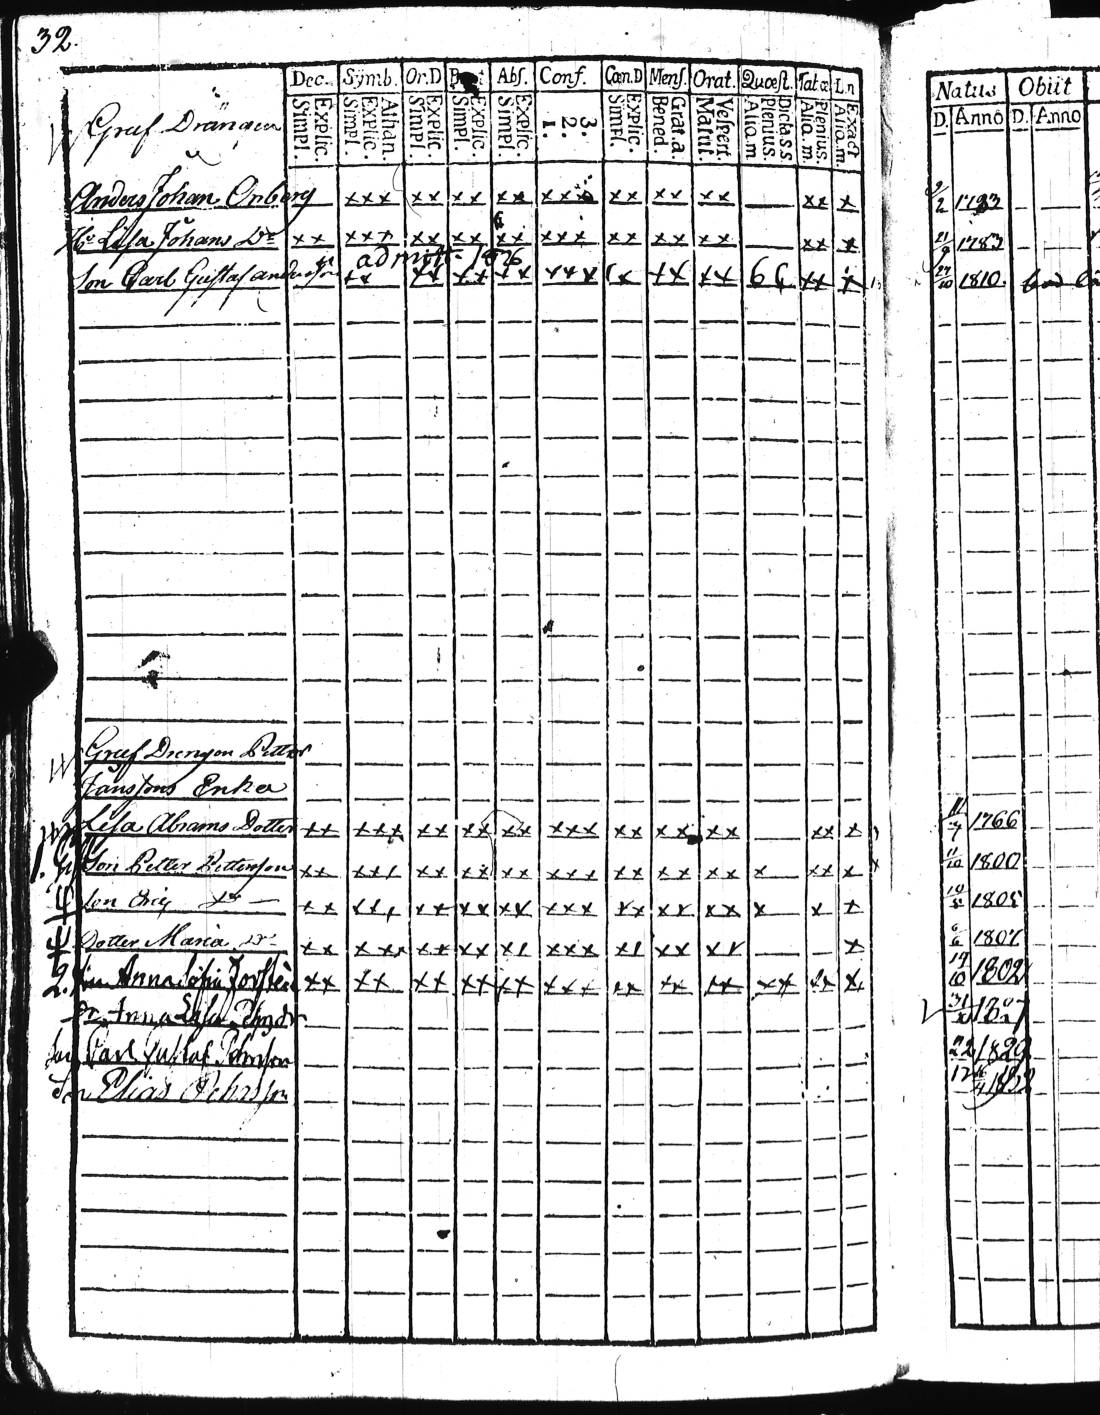 32.
Dec. Symb. Or.D Abs. Conf. Cœn.D Mens. Orat. Quœst. Tabœ Ln
Explic. Simpl. Athan. Explic. Simpl. Explic. Simpl. Explic. Simpl. Explic. Simpl. 3. 2. 1. Explic. Simpl. Grat.a. Bened. Vespert. Matut. Dicta.s.s Plenius. Aliq.m Plenius. Aliq.m. Exact Aliq.m.
Natus Obiit
D. Anno D. Anno
Graf Drängen
Anders Johan Onberg xxx xx xx xx xxx xx xx xx xx x 2/2 1783
Hu Lisa Johans Dr xx xxx xx xx xx xxx xx xx xx xx x 21/9 1783
admitt. 1826
Son Carl Gustaf Andersson xx xx xx xx xxx xx xx xx xx x 27/10 1810.
Graf Drengen Petter
Jansons Enka
Lisa Abrams Dotter xx xxx xx xx xx xxx xx xx xx xx x 1766
1. Son Petter Pettersson xx xxx xx xx xx xxx xx xx xx x xx x 11/10 1800
Son xx xxx xx xx xx xxx xx xx xx x x x 1805
Dotter Maria Dr xx xxx xx xx xx xxx xx xx xx x 6/6 1807
2. Anna Sofia xx xx xx xx xx xxx xx xx xx xx xx x 19/10 1802
Dr. Anna Lisa
Son Carl Gustaf 1829
Son Elias